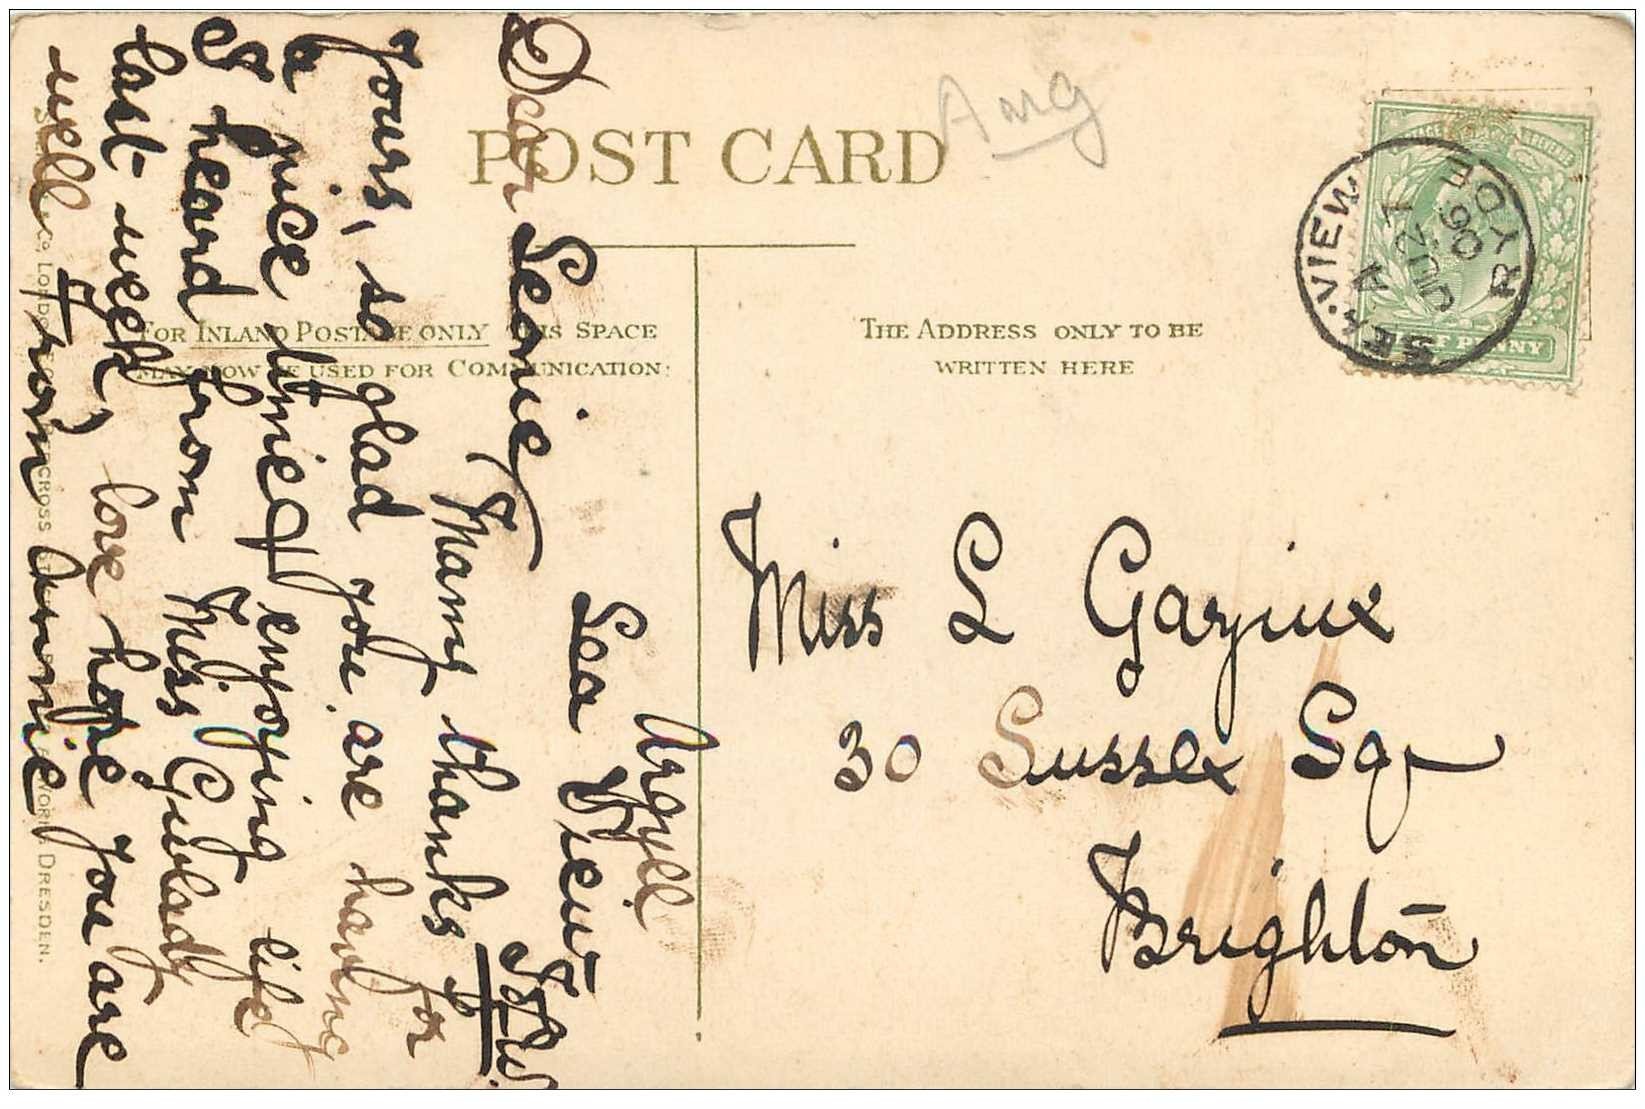 POST CARD
Amg
FOR INLAND POSTAGE ONLY THIS SPACE
MAY NOW BE USED FOR COMMUNICATION:
THE ADDRESS ONLY TO BE
WRITTEN HERE
SEA-VIEW
RYDE
A
JU 27
06
HALF PENNY
Miss L Gazieux
30 Sussex Sqr
Brighton
Argyll
Sea View
Dear Leonie, Many thanks for
yours, so glad you are having
a nice time & enjoying life
I heard from Miss
last week, love hope you are
well from Annie
LONDON
DRESDEN.